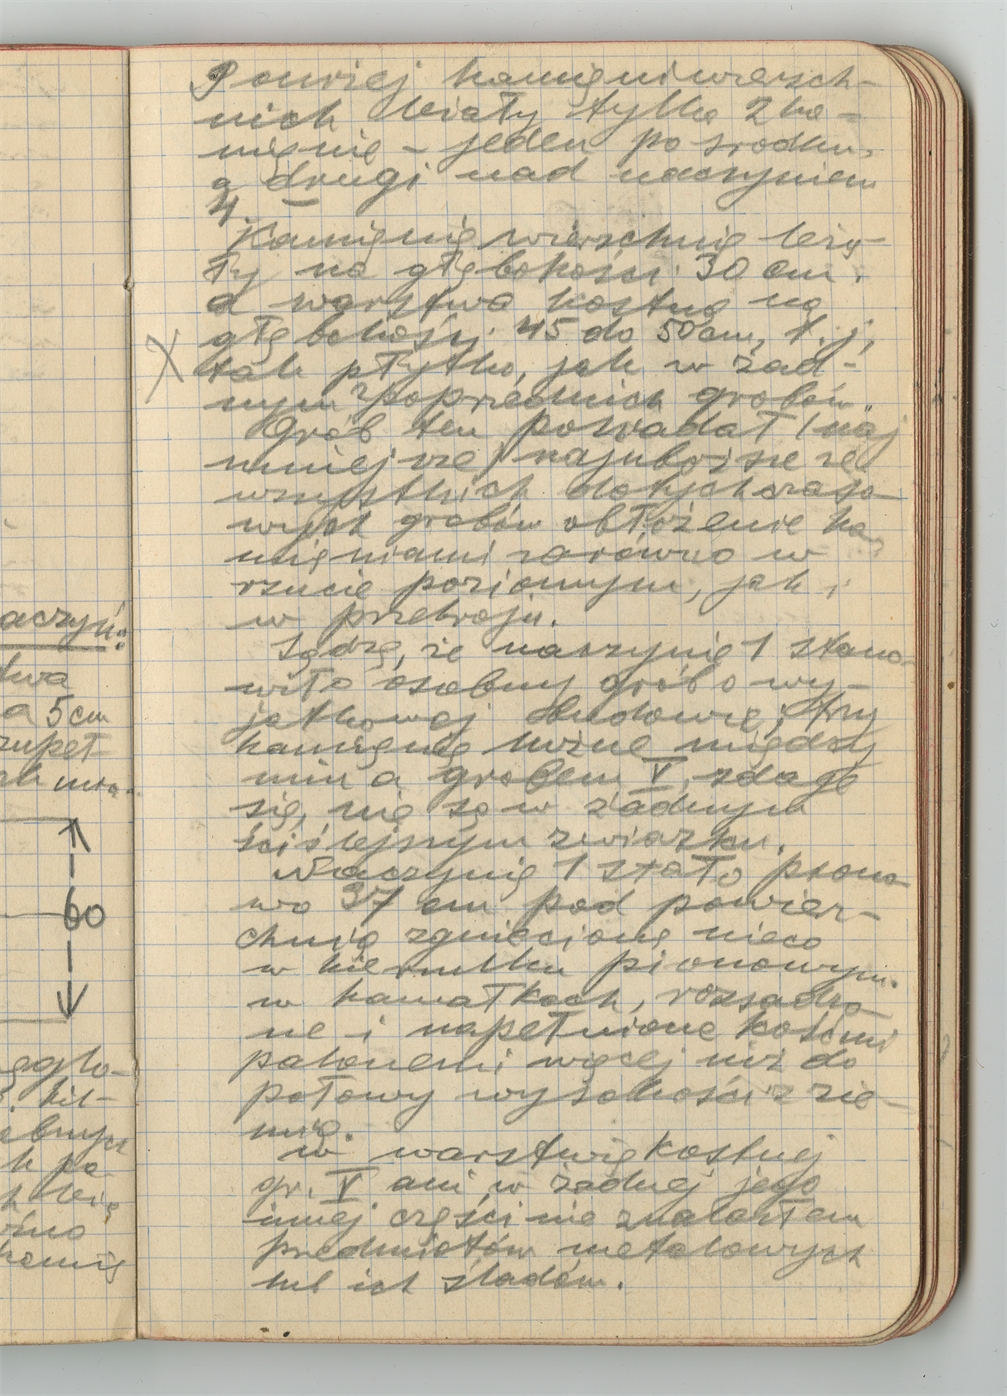 aczyń:
twa
a 5 cm
zupeł-
60
Powiej kamieni wierzch-
nich leżały tylko 2 ka-
mienie – jeden po środku,
a drugi nad naczyniem
4
Kamienie wierzchnie leża-
ły na głębokości 30 cm.
a warstwa kostna na
głębokości 45 do 50 cm, t. j.
X tak płytko, jak w żad-
nym z poprzednich grobów.
Grób ten posiadał (naj
mniejsze) najuboższe ze
wszystkich dotychczaso-
wych grobów obłożenie ka-
mieniami zarówno w
rzucie poziomym, jak i
w przekroju.
Sądzę, że naczynie 1 stano-
wiło osobny grób o wy-
jątkowej budowie; trzy
kamienie luźne między
nim a grobem V, zdaje
się, nie są w żadnym
ściślejszym związku.
Naczynie 1 stało piono-
wo 37 cm pod powierz-
chnią zgniecione nieco
w kierunku pionowym.
w kawałkach, rozsadzo-
ne i napełnione kośćmi
palonemi więcej niż do
połowy wysokości z zie-
mią.
W warstwie kostnej
gr. V ani w żadnej jego
innej części nie znalazłem
przedmiotów metalowych
lub ich śladów.